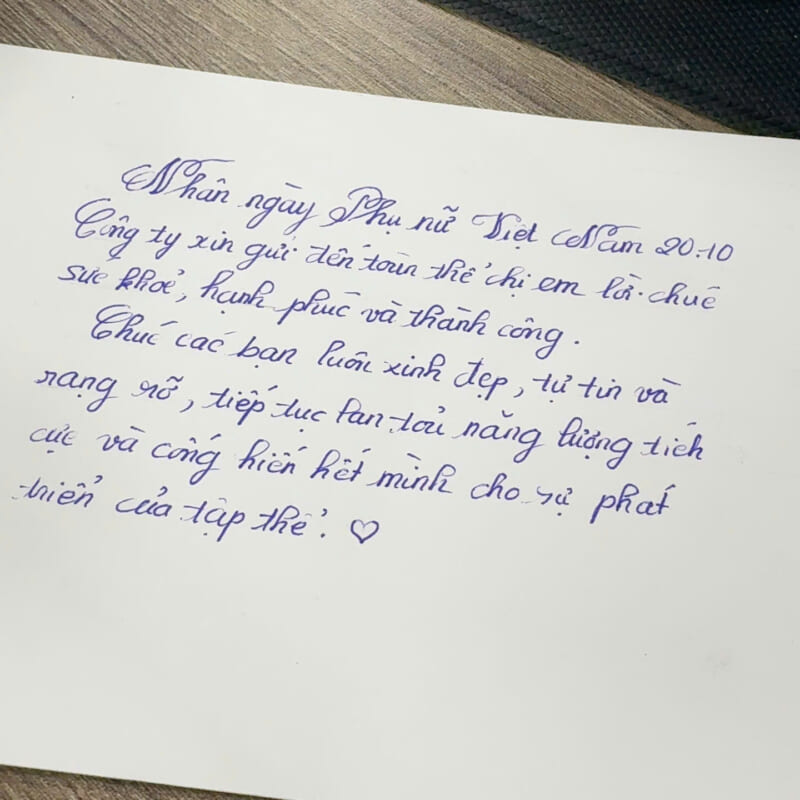 Nhân ngày Phụ nữ Việt Nam 20.10
Công ty xin gửi đến toàn thể chị em lời chúc
sức khoẻ, hạnh phúc và thành công.
Chúc các bạn luôn xinh đẹp, tự tin và
rạng rỡ, tiếp tục lan toả năng lượng tích
cực và cống hiến hết mình cho sự phát
triển của tập thể. ♡